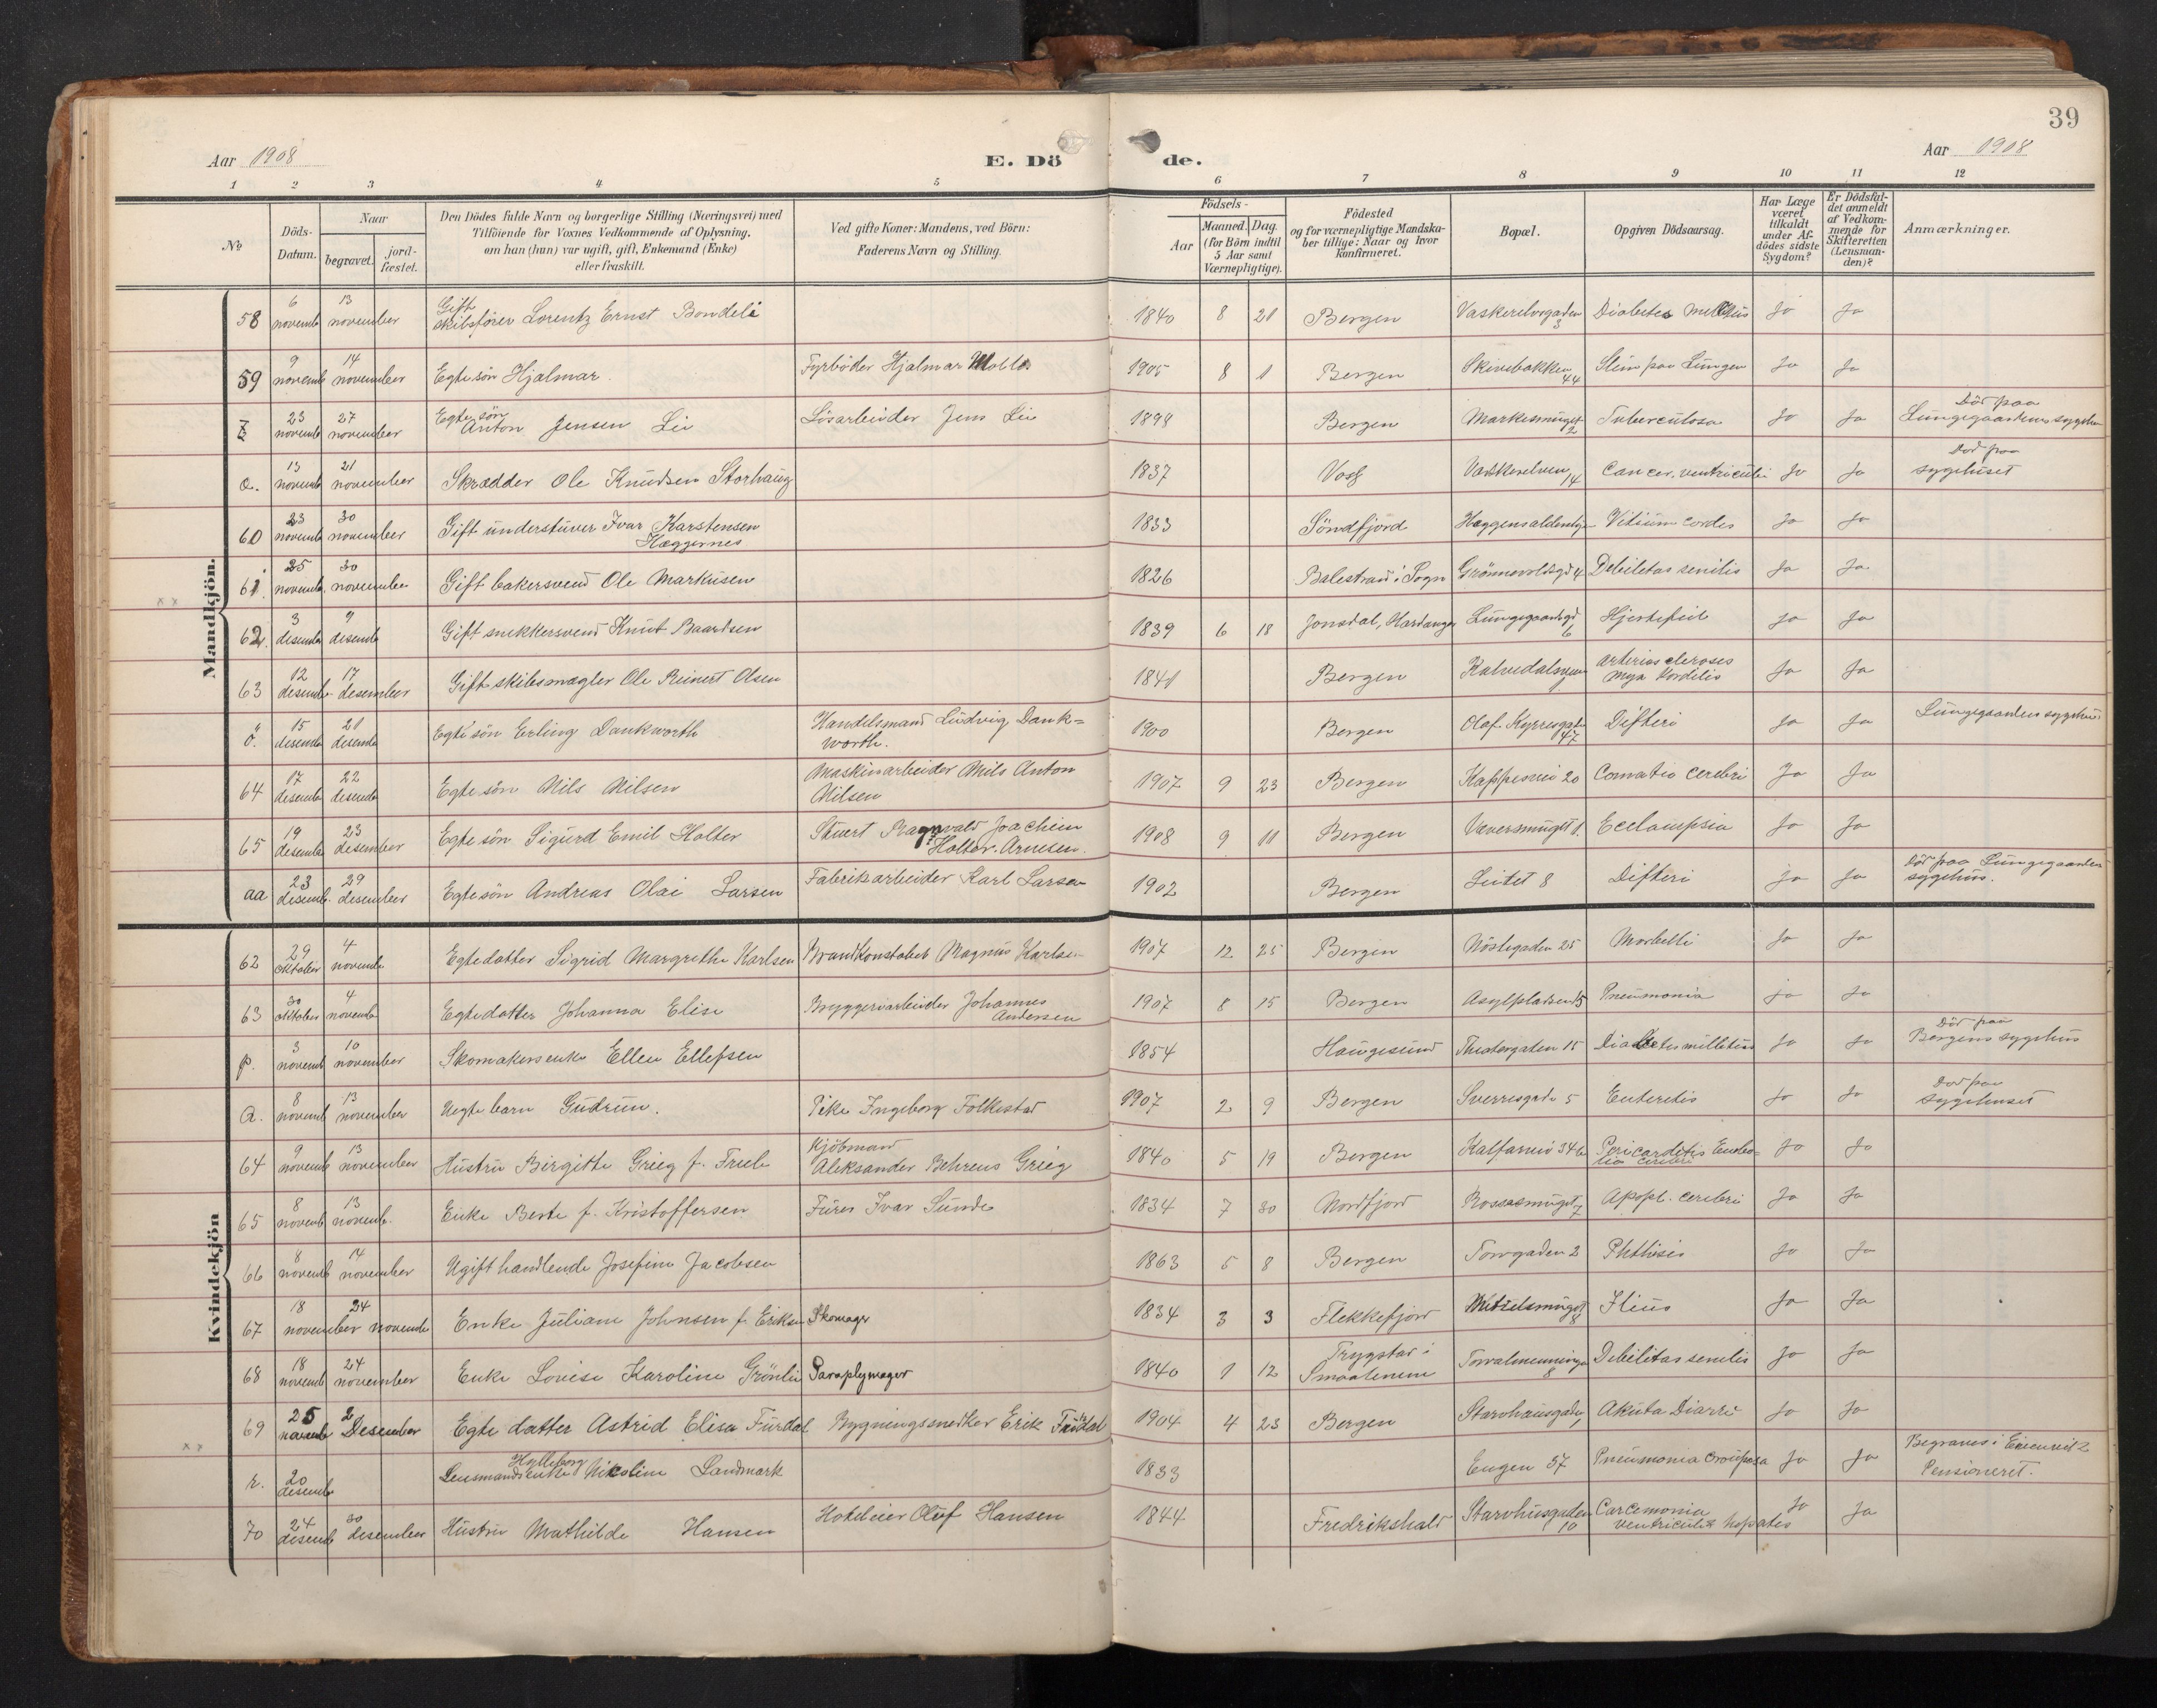 39
Aar 1908 E. Dö de. Aar 1908
1 2 3 4 5 6 7 8 9 10 11 12
No
Döds-Datum.
Naar
begravet.
jord-fæstet.
Den Dödes fulde Navn og borgerlige Stilling (Næringsvei) med
Tilföiende for Voxnes Vedkommende af Oplysning,
om han (hun) var ugift, gift, Enkemand (Enke)
eller fraskilt.
Ved gifte Koner: Mandens, ved Börn:
Faderens Navn og Stilling.
Födsels-
Aar
Maaned. Dag.
(for Börn indtil
5 Aar samt
Værnepligtige).
Födested
og for værnepligtige Mandska-
ber tillige: Naar og hvor
konfirmeret.
Bopæl.
Opgiven Dödsaarsag.
Har Læge
været
tilkaldt
under Af-
dödes sidste
Sygdom?
Er Dödsfal-
det anmeldt
af Vedkom-
mende for
Skifteretten
(Lensman-
den)?
Anmærkninger.
Mandkjön.
58 6 novemb 13 november Gift skibsförer Lorentz Ernst Bondeli 1840 8 21 Bergen Vaskerelvsgaden 3 Diabetes Mellitus Ja Ja
59 9 novemb 14 november Egte sön Hjalmar. Fyrböder Hjalmar 1905 8 1 Bergen Skivebakken 44 Slim paa Lungen Ja Ja
23 novemb 27 november Egte sön Anton Jensen Lie Lösarbeider Jens Lie 1898 Bergen Markesmuget 2 Tuberculosa Ja Ja Död paa Lungegaardens sygehus
13 novemb 21 november Skrædder Ole Knudsen Storhaug 1837 Voss Vaskerelven 14 Cancer. ventriculi Ja Ja Död paa sygehuset
60 23 novemb 30 november Gift understuver Ivar Karstensen Hæggernes 1833 Söndfjord Vitium cordis Ja Ja
61. 25 novemb. 30 november Gift bakersvend Ole Markusen 1826 Balestrand i Sogn Grönnevoldsgd 4 Debiletas senilis Ja Ja
62. 3 desemb 9 desemb Gift snekkersvend Knut Baardsen 1839 6 18 Jonsdal, Hardanger Lungegaardsgd 6 Hjertefeil Ja Ja
63 12 desemb. 17 desember Gift skibsmægler Ole Reinert Olsen 1841 Bergen Kalvedalsveien arterios cleroses Ja Ja
ö. 15 desemb 21 desemb Egte sön Erling Dankworth Handelsmand Ludvig Dank=
worth. 1900 Bergen Olaf Kyrresgate 47 Difteri Ja Ja Lungegaardens sygehus
64 17 desemb 22 desemb Egte sön Nils Nilsen Maskinarbeider Nils Anton
Nilsen 1907 9 23 Bergen Kappevei 20 Comatio cerebri Ja Ja
65 19 desemb 23 desember Egte sön Sigurd Emil Holter Stuert Ragnvald Joachim
Holter. Arnesen. 1908 9 11 Bergen Væversmuget 1. Eclampsia Ja Ja
aa 23 desemb. 29 desember Egte sön Andreas Olai Larsen Fabrikarbeider Karl Larsen 1902 Bergen Leitet 8 Difteri Ja Ja Död paa Lungegaardens
sygehus.
Kvindekjön
62 29 oktober 4 novemb Egte datter Sigrid Margrethe Karlsen Brandkonstabel Magnus Karlsen 1907 12 25 Bergen Nöstegaden 25 Morbelli Ja Ja
63 30 oktober 4 novemb Egte datter Johanna Elise Bryggeriarbeider Johannes
Andersen 1907 8 15 Bergen Asylpladsen 15 Pneumonia Ja Ja
p. 3 novemb 10 november Skomakersenke Ellen Ellefsen 1854 Haugesund Theatergaten 15 Diabetes millitus Ja Ja Död paa
Bergens sygehus
8 novemb 13 november Uegte barn Gudrun. Pike Ingeborg Folkestad 1907 2 9 Bergen Sverresgade 5 Enteritis Ja Ja Död paa
sygehuset
64 9 novemb 13 november Hustru Birgitte Grieg f. Friele Kjöbmand
Aleksander Behrens Grieg 1840 5 19 Bergen Kalfarvei 34 b Pericarditis Embo=
lia cerebri Ja Ja
65 8 novemb 13 novemb. Enke Berte f. Kristoffersen Furer Ivar Sunde 1834 7 30 Nordfjord Rossesmuget 7 Apopl. cerebri Ja Ja
66 8 novemb 14 november Ugift handlende Josefine Jacobsen 1863 5 8 Bergen Torvgaden 2 Phthisis Ja Ja
67 18 november 24 novemb Enke Juliane Johnsen f. Eriksen Skomager 1834 3 3 Flekkefjord 8 Ileus Ja Ja
68 18 novemb 24 november Enke Lovise Karoline Grönlie Paraplymager 1840 1 12 Trygstad i
Smaalenene Torvalmenningen 8 Debilitas senilis Ja Ja
69 25 novemb 2 Desember Egte datter Astrid Elisa Furdal Bygningssnedker Erik Furdal 1904 4 23 Bergen Starvhusgaden 1 Akuta Diarré Ja Ja
r. 20 desemb Lensmandsenke Hylleborg Nikoline Landmark 1833 Engen 37 Pneumonia crouposa Ja Ja Begraves i Eivindvik
Pensioneret.
70 24 desemb 30 desember Hustru Mathilde Hansen Hoteleier Oluf Hansen 1844 Fredrikshald Starvhusgaden 10 Carcemonia
ventriculi & hepates Ja Ja